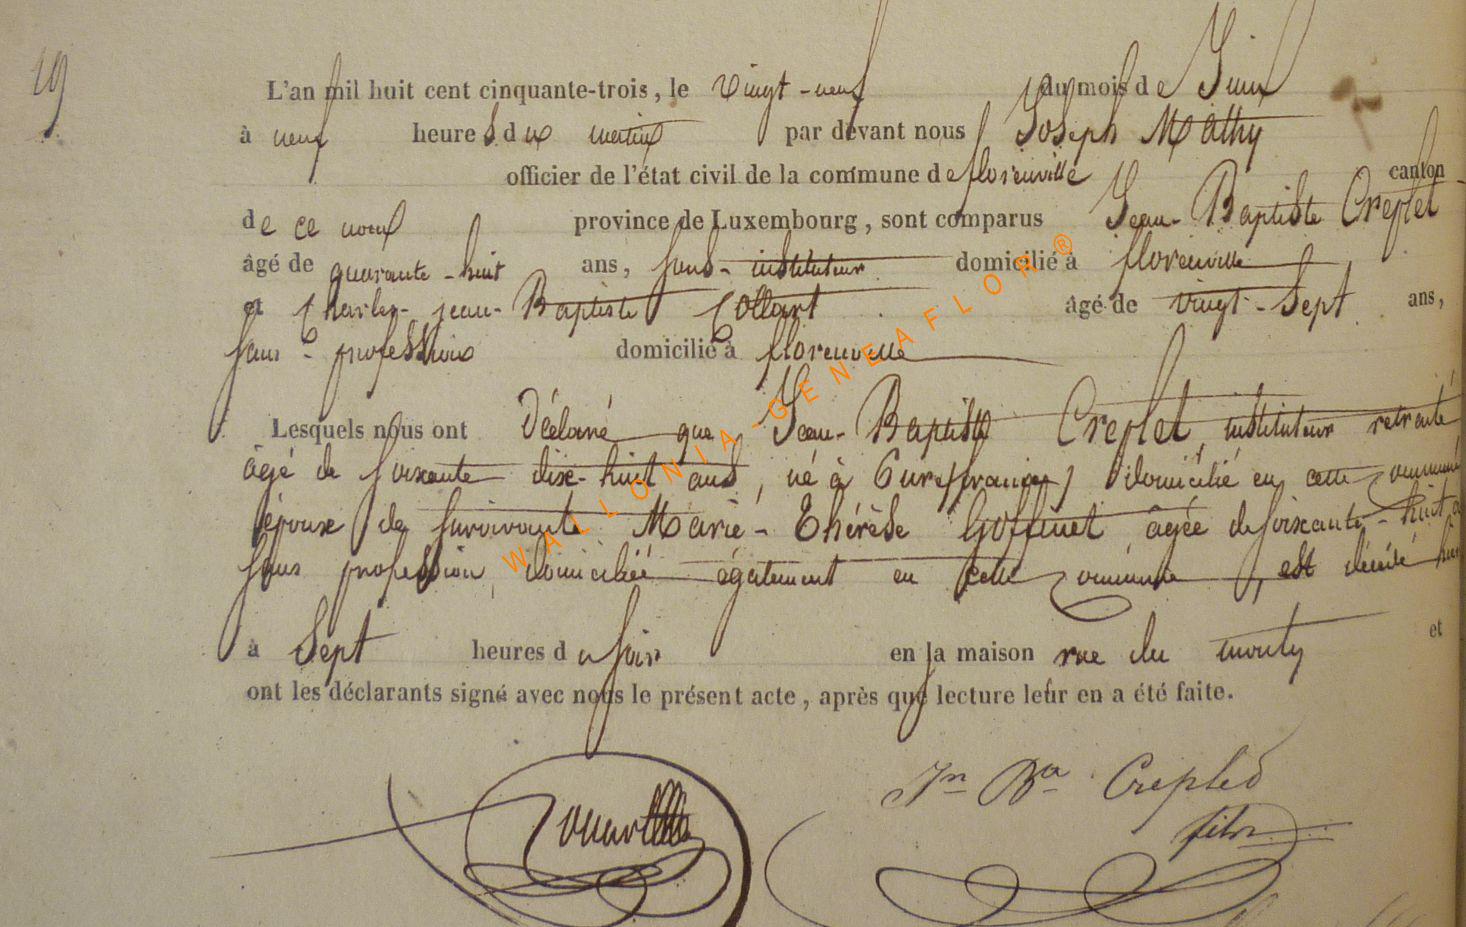 19
L'an mil huit cent cinquante-trois, le vingt-neuf du mois de Juin
à neuf heures du matin par devant nous Joseph Mathy
officier de l'état civil de la commune de florenville canton
de ce nom province de Luxembourg, sont comparus Jean-Baptiste Creplet
âgé de quarante-huit ans, sous-instituteur domicilié à florenville
et Charles-jean-Baptiste Collart âgé de vingt-sept ans,
sans-profession domicilié à florenville
Lesquels nous ont Déclaré que Jean-Baptiste Creplet, instituteur retraité
âgé de soixante dix-huit ans, né à (france) domicilié en cette commune
époux de survivante Marie-Thérèse Goffinet, âgée de soixante-huit
sans profession, domiciliée également en cette commune, est décédé
à sept heures du soir en la maison rue du monty et
ont les déclarants signé avec nous le présent acte, après que lecture leur en a été faite.
Jn Bte Creplet
fils
WALLONIA-GENEAFLOR ®